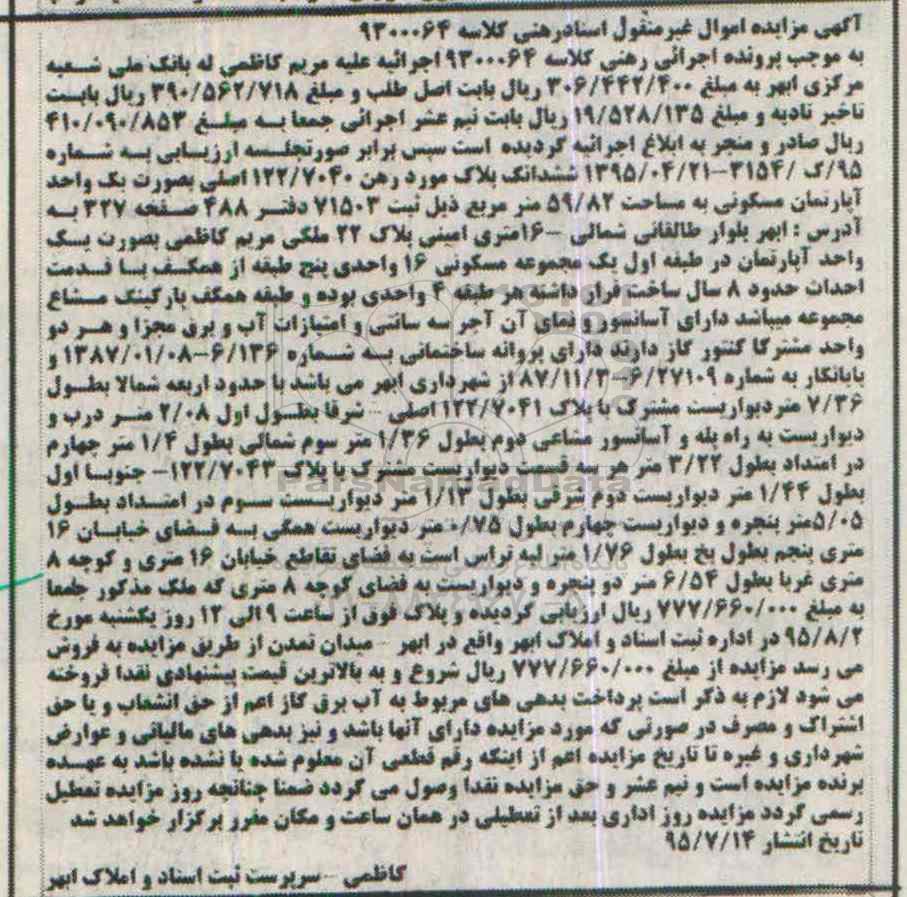 آگهی مزایده اموال غیرمنقول اسنادرهنی کلاسه ۹۳۰۰۰۶۴
به موجب پرونده اجرائی رهنی کلاسه ۹۳۰۰۰۶۴ اجرائیه علیه مریم کاظمی له بانک ملی شعبه
مرکزی ابهر به مبلغ ۳۰۶/۴۴۲/۴۰۰ ریال بابت اصل طلب و مبلغ ۳۹۰/۵۶۲/۷۱۸ ریال بابت
تاخیر تادیه و مبلغ ۱۹/۵۲۸/۱۳۵ ریال بابت نیم عشر اجرائی جمعا به مبلغ ۴۱۰/۰۹۰/۸۵۳
ریال صادر و منجر به ابلاغ اجرائیه گردیده است سپس برابر صورتجلسه ارزیابی به شماره
۹۵/ک /۳۱۵۴-۱۳۹۵/۰۴/۲۱ ششدانگ پلاک مورد رهن ۱۲۲/۷۰۴۰ اصلی بصورت یک واحد
آپارتمان مسکونی به مساحت ۵۹/۸۲ متر مربع ذیل ثبت ۷۱۵۰۳ دفتر ۴۸۸ صفحه ۳۲۷ به
آدرس : ابهر بلوار طالقانی شمالی -۱۶متری امینی پلاک ۲۲ ملکی مریم کاظمی بصورت یک
واحد آپارتمان در طبقه اول یک مجموعه مسکونی ۱۶ واحدی پنج طبقه از همکف با قدمت
احداث حدود ۸ سال ساخت قرار داشته هر طبقه ۴ واحدی بوده و طبقه همکف پارکینگ مشاع
مجموعه میباشد دارای آسانسور و نمای آن آجر سه سانتی و امتیازات آب و برق مجزا و هر دو
واحد مشترکا کنتور گاز دارند دارای پروانه ساختمانی به شماره ۶/۱۳۶-۱۳۸۷/۰۱/۰۸ و
پایانکار به شماره ۶/۲۷۱۰۹-۸۷/۱۱/۳ از شهرداری ابهر می باشد با حدود اربعه شمالا بطول
۷/۳۶ متردیواریست مشترک با پلاک ۱۲۲/۷۰۴۱ اصلی - شرقا بطول اول ۲/۰۸ متر درب و
دیواریست به راه پله و آسانسور مشاعی دوم بطول ۱/۳۶ متر سوم شمالی بطول ۱/۴ متر چهارم
در امتداد بطول ۳/۲۲ متر هر سه قسمت دیواریست مشترک با پلاک ۱۲۲/۷۰۴۳- جنوبا اول
بطول ۱/۴۴ متر دیواریست دوم شرقی بطول ۱/۱۳ متر دیواریست سوم در امتداد بطول
۵/۰۵متر پنجره و دیواریست چهارم بطول ۰/۷۵ متر دیواریست همگی به فضای خیابان ۱۶
متری پنجم بطول پخ بطول ۱/۷۶ متر لبه تراس است به فضای تقاطع خیابان ۱۶ متری و کوچه ۸
متری غربا بطول ۶/۵۴ متر دو پنجره و دیواریست به فضای کوچه ۸ متری که ملک مذکور جمعا
به مبلغ ۷۷۷/۶۶۰/۰۰۰ ریال ارزیابی گردیده و پلاک فوق از ساعت ۹ الی ۱۲ روز یکشنبه مورخ
۹۵/۸/۲ در اداره ثبت اسناد و املاک ابهر واقع در ابهر - میدان تمدن از طریق مزایده به فروش
می رسد مزایده از مبلغ ۷۷۷/۶۶۰/۰۰۰ ریال شروع و به بالاترین قیمت پیشنهادی نقدا فروخته
می شود لازم به ذکر است پرداخت بدهی های مربوط به آب برق گاز اعم از حق انشعاب و یا حق
اشتراک و مصرف در صورتی که مورد مزایده دارای آنها باشد و نیز بدهی های مالیاتی و عوارض
شهرداری و غیره تا تاریخ مزایده اعم از اینکه رقم قطعی آن معلوم شده یا نشده باشد به عهده
برنده مزایده است و نیم عشر و حق مزایده نقدا وصول می گردد ضمنا چنانچه روز مزایده تعطیل
رسمی گردد مزایده روز اداری بعد از تعطیلی در همان ساعت و مکان مقرر برگزار خواهد شد
تاریخ انتشار ۹۵/۷/۱۴
کاظمی - سرپرست ثبت اسناد و املاک ابهر
ParsNamadData